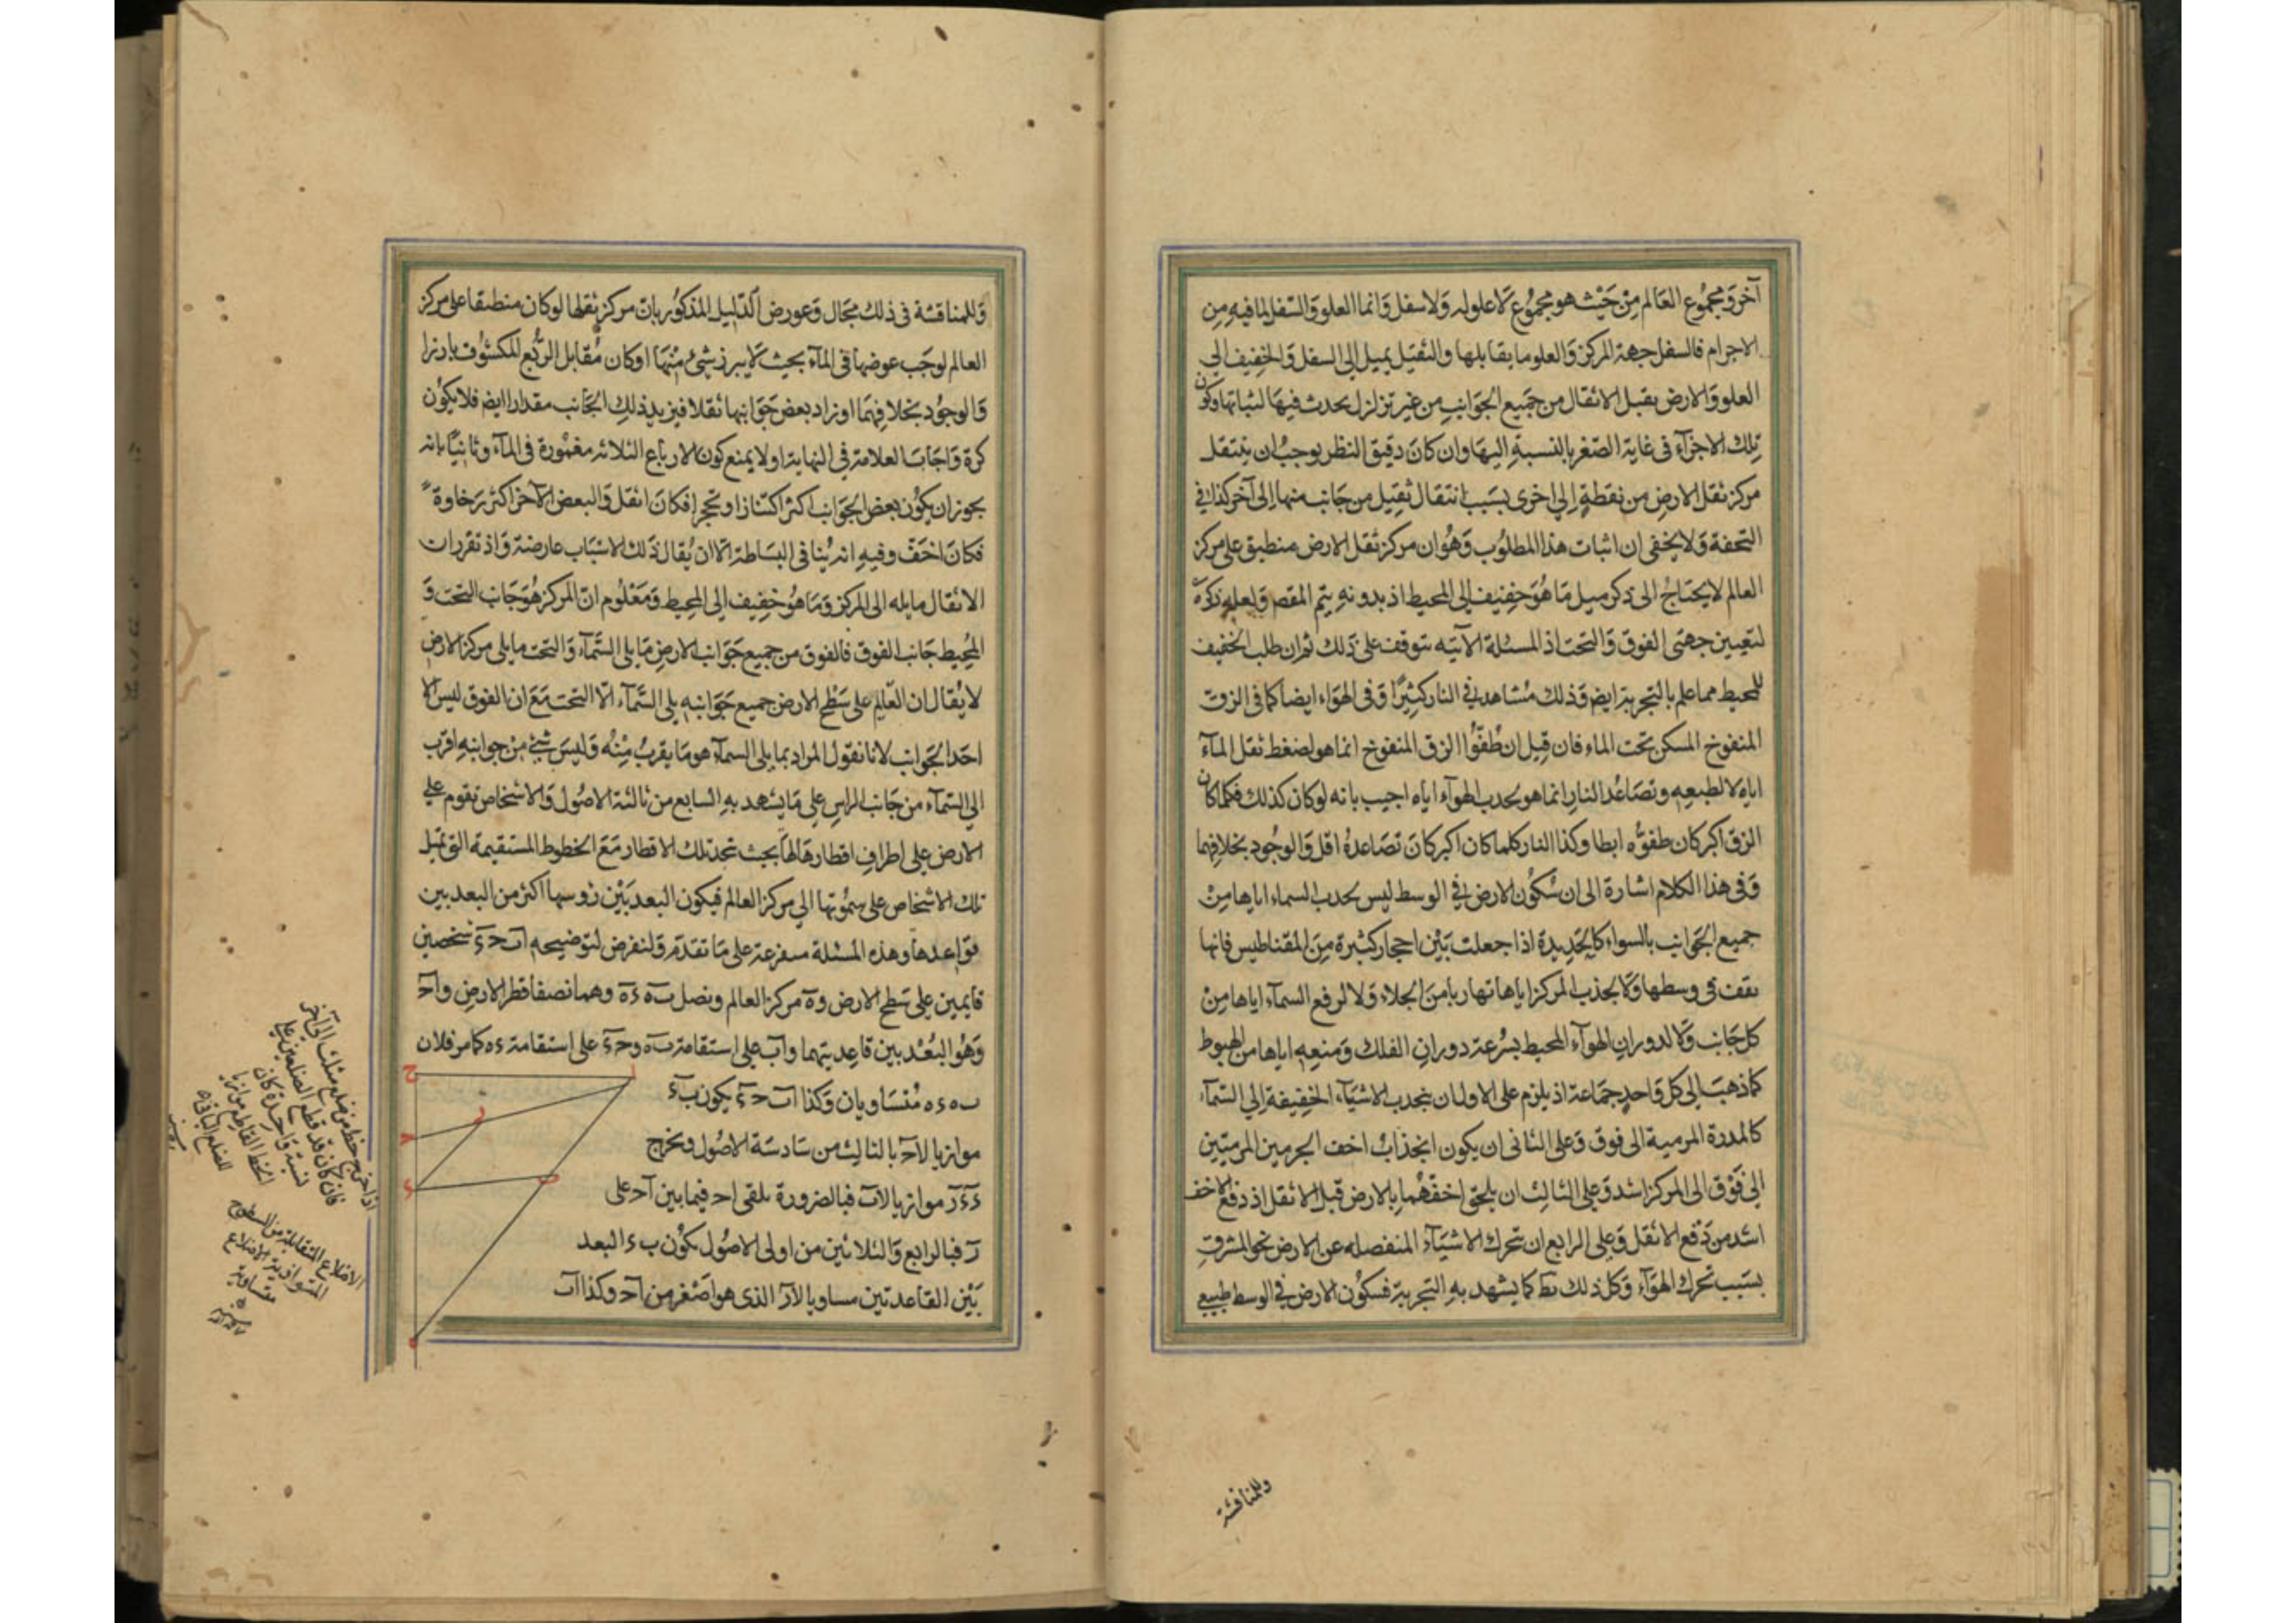 آخر ومجموع العالم من حيث هو مجموع لا علو له ولا سفل وانما العلو والسفل لما فيه من
الاجرام فالسفل جهة المركز والعلو ما يقابلها والثقيل يميل الى السفل والخفيف الى
العلو والارض يقبل الاثقال من جميع الجوانب من غير تزلزل يحدث فيها لثباتها وكون
تلك الاجزآء فى غاية الصغر بالنسبة اليها وان كان دقيق النظر يوجب ان ينتقل
مركز ثقل الارض من نقطة الى اخرى بسبب انتقال ثقيل من جانب منها الى آخر كذا فى
التحفة ولا يخفى ان اثبات هذا المطلوب وهو ان مركز ثقل الارض منطبق على مركز
العالم لا يحتاج الى ذكر ميل ما هو خفيف الى المحيط اذ بدونه يتم المقصـ ولعله ذكره
لتعيين جهتى الفوق والتحت اذ المسئلة الآتيه تتوقف على ذلك ثم ان طلب الخفيف
للمحيط مما علم بالتجربة ايضـ وذلك مشاهد فى النار كثيرًا وفى الهوآء ايضا كما فى الزق
المنفوخ المسكن تحت الماء فان قيل ان طفوّ الزق المنفوخ انما هو لضغط ثقل المآء
اياه لا لطبعه وتصاعد النار انما هو بجذب الهوآء اياه اجيب بانه لو كان كذلك فكلما كان
الزق اكبر كان طفوّه ابطا وكذا النار كلما كان اكبر كان تصاعدهُ اقل والوجود بخلافهما
وفى هذا الكلام اشارة الى ان سكون الارض فى الوسط ليس بجذب السماء اياها من
جميع الجوانب بالسواء كالحديدة اذا جعلت بين احجار كثيرة من المقناطيس فانها
تقف فى وسطها ولا بجذب المركز اياها تهاربا من الجلاء ولا لرفع السمآء اياها من
كل جانب ولا لدوران الهوآء المحيط بسرعة دوران الفلك ومنعه اياها من الهبوط
كما ذهب الى كل واحد جماعة اذ يلزم على الاول ان ينجذب الاشيآء الخفيفة الى السمآء
كالمدرة المرمية الى فوق وعلى الثانى ان يكون انجذاب اخف الجرمين المرميتين
الى فوق الى المركز اشد وعلى الثالث ان يلحق اخفهما بالارض قبل الاثقل اذ دفع الاخف
اشد من دفع الاثقل وعلى الرابع ان تتحرك الاشيآء المنفصله عن الارض نحو المشرق
بسبب تحرك الهوآء وكل ذلك بط كما يشهد به التجربة فسكون الارض فى الوسط طبيعى
وللمناقشة
وللمناقشة فى ذلك مجال وعورض الدليل المذكور بان مركز ثقلها لو كان منطبقا على مركز
العالم لوجب غوضها فى المآء بحيث لا يبرز شئ منها او كان مقابل الربع المكشوف بارزا
والوجود بخلافهما او زاد بعض جوانبها ثقلا فيزيد ذلك الجانب مقدارا ايضـ فلا يكون
كرة واجاب العلامة فى النهاية اولا بمنع كون الارباع الثلاثه مغمورة فى المآء وثانيًا بانه
يجوز ان يكون بعض الجوانب اكثر اكتنازا وتحجرا فكان اثقل والبعض الآخر اكثر رخاوةً
فكان اخف وفيه انه ينافى البساطة الا ان يقال ذلك لاسباب عارضة واذ تقرر ان
الاثقال مايله الى المركز وما هو خفيف الى المحيط ومعلوم ان المركز هو جانب التحت و
المحيط جانب الفوق فالفوق من جميع جوانب الارض ما يلى السمآء والتحت ما يلى مركز الارض
لا يقال ان القايم على سطح الارض جميع جوانبه يلى السمآء الا التحت مع ان الفوق ليس الا
احد الجوانب لانا نقول المراد بما يلى السمآء هو ما يقرب منه وليس شئ من جوانبه اقرب
الى السمآء من جانب الراس على ما يشهد به السابع من ثالثة الاصول والاشخاص تقوم على
الارض على اطراف اقطارها لها بحيث تتحد تلك الاقطار مع الخطوط المستقيمة التى تميل
تلك الاشخاص على سموتها الى مركز العالم فيكون البعد بين رؤسها اكثر من البعد بين
قواعدها وهذه المسئلة متفرعة على ما تقدم ولنفرض لتوضيحه اب حء شخصين
قايمين على سطح الارض وه مركز العالم ونصل به ءه وهما نصفا قطر الارض واح
وهو البعد بين قاعدتيهما واب على استقامة به وحء على استقامة ءه كما مر فلان
به ءه متساويان وكذا اب حء يكون بء
موازيا لاح بالثالث من سادسة الاصول ونخرج
ءر موازيا لاب فبالضرورة يلقى اح فيما بين اح على
ر فبالرابع والثلاثين من اولى الاصول يكون بء البعد
بين القاعدتين مساويا لار الذى هو اصغر من اح وكذا اب
ا
ح
ر
ء
ب
ه
اذا خرج خط من ضلع مثلث الى آخر
فان كان قد قطع الضلعين على
نسبة واحدة كان
الخط القاطع موازيا
للضلع الباقى
الاضلاع المتقابلة من السطوح
المتوازية الاضلاع
متساوية